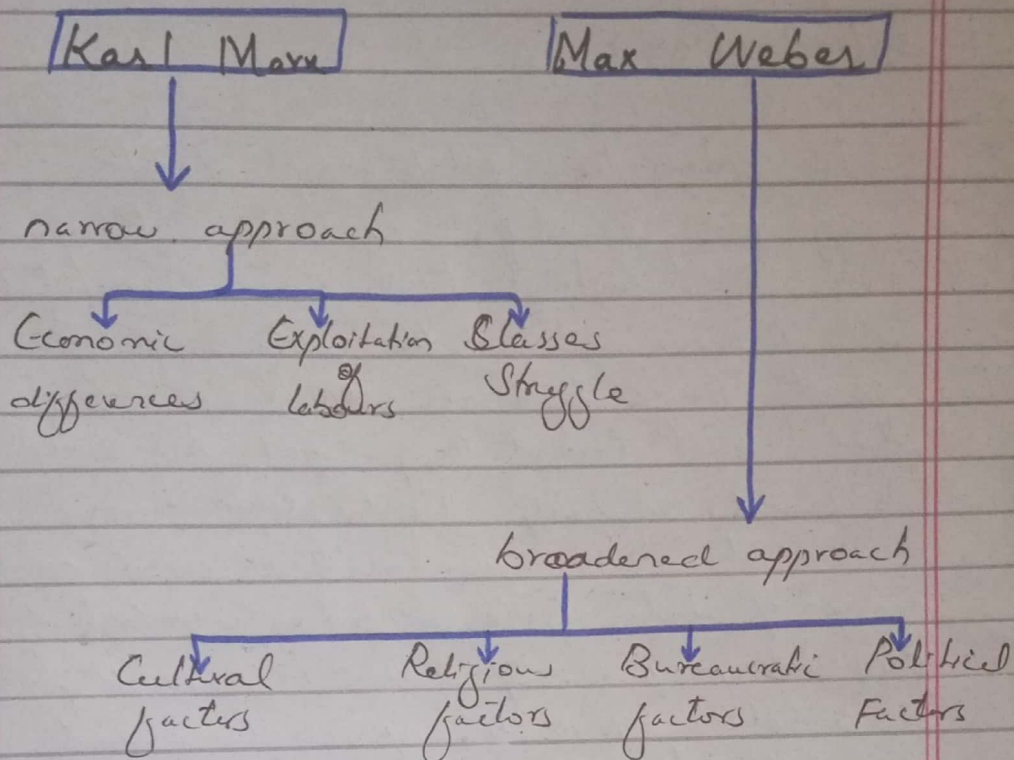 Karl Marx
Max Weber
narrow approach
Economic
differences
Exploitation
of
labours
Classes
Struggle
broadened approach
Cultural
factors
Religious
factors
Bureaucratic
factors
Political
Factors